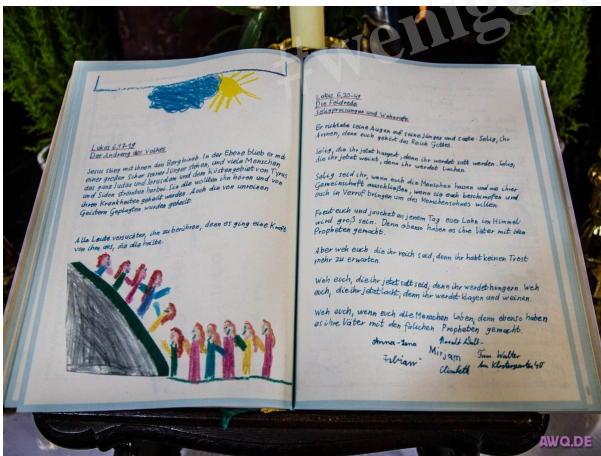 #wenige
Lukas 6,17-19
Der Andrang des Volkes
Jesus stieg mit ihnen den Berg hinab. In der Ebene blieb er mit
einer großen Schar seiner Jünger stehen, und viele Menschen
aus ganz Judäa und Jerusalem und dem Küstengebiet von Tyrus
und Sidon strömten herbei. Sie alle wollten ihn hören und von
ihren Krankheiten geheilt werden. Auch die von unreinen
Geistern Geplagten wurden geheilt.
Alle Leute versuchten, ihn zu berühren, denn es ging eine Kraft
von ihm aus, die alle heilte.
Lukas 6,20-49
Die Feldrede
Seligpreisungen und Weherufe
Er richtete seine Augen auf seine Jünger und sagte: Selig, ihr
Armen, denn euch gehört das Reich Gottes.
Selig, die ihr jetzt hungert, denn ihr werdet satt werden. Selig,
die ihr jetzt weint, denn ihr werdet lachen.
Selig seid ihr, wenn euch die Menschen hassen und aus ihrer
Gemeinschaft ausschließen, wenn sie euch beschimpfen und
euch in Verruf bringen um des Menschensohnes willen.
Freut euch und jauchzt an jenem Tag; euer Lohn im Himmel
wird groß sein. Denn ebenso haben es ihre Väter mit den
Propheten gemacht.
Aber weh euch, die ihr reich seid, denn ihr habt keinen Trost
mehr zu erwarten.
Weh euch, die ihr jetzt satt seid, denn ihr werdet hungern. Weh
euch, die ihr jetzt lacht, denn ihr werdet klagen und weinen.
Weh euch, wenn euch die Menschen loben, denn ebenso haben
es ihre Väter mit den falschen Propheten gemacht.
Anna-Lena
Fabian
Mirjam
Elisabeth
Walter
Am Klostergarten
AWQ.DE